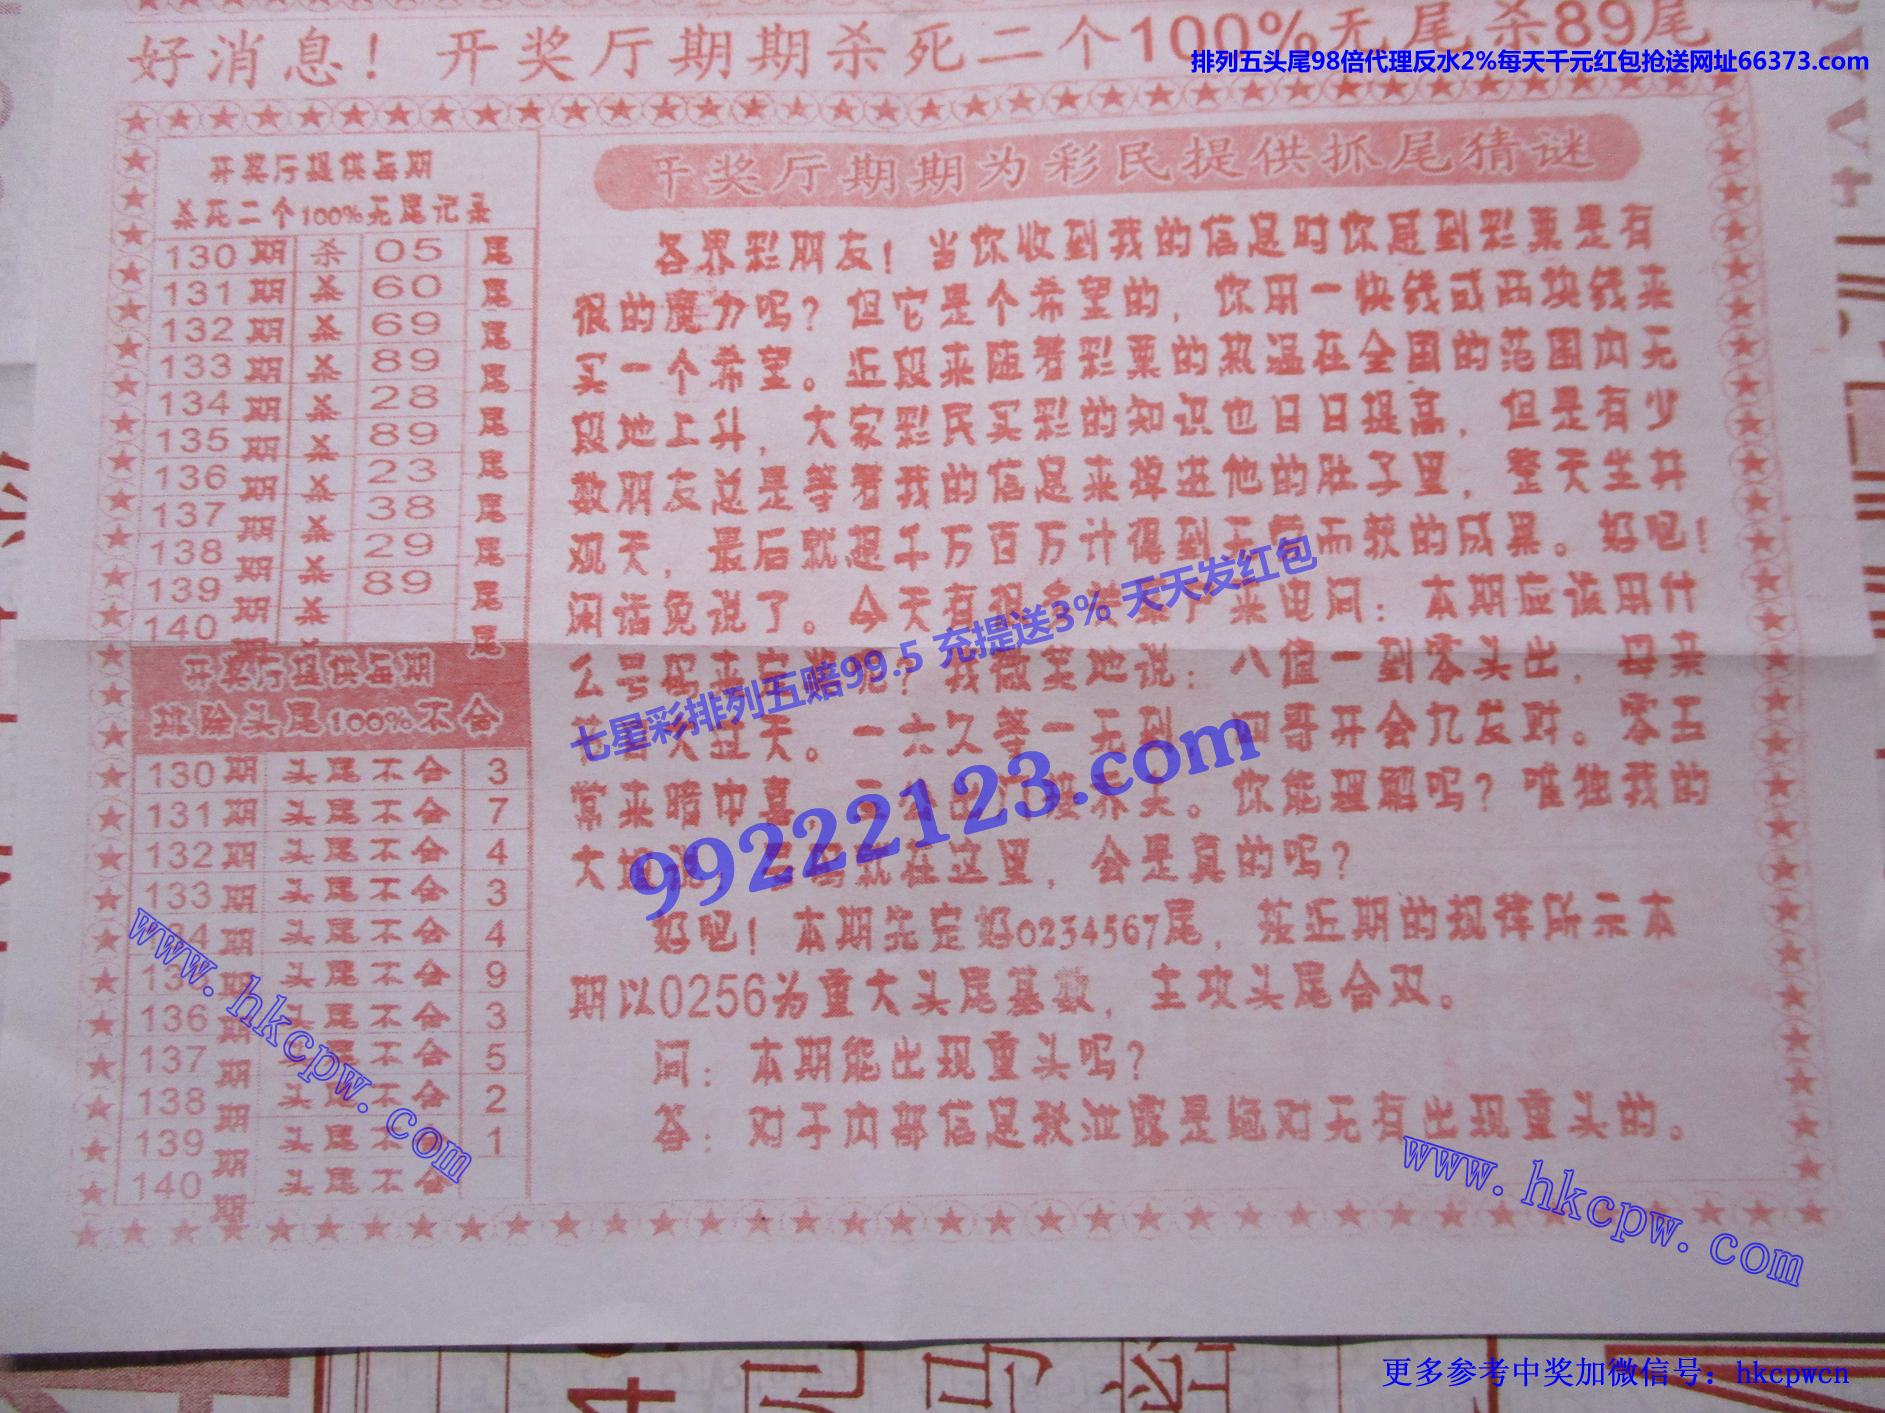 好消息！开奖厅期期杀死二个100%无尾杀89尾
排列五头尾98倍代理反水2%每天千元红包抢送网址66373.com
开奖厅提供每期
杀死二个100%无尾记录
130期 杀 05 尾
131期 杀 60 尾
132期 杀 69 尾
133期 杀 89 尾
134期 杀 28 尾
135期 杀 89 尾
136期 杀 23 尾
137期 杀 38 尾
138期 杀 29 尾
139期 杀 89 尾
140期 杀 尾
开奖厅提供每期
排除头尾100%不合
130期 头尾不合 3
131期 头尾不合 7
132期 头尾不合 4
133期 头尾不合 3
134期 头尾不合 4
135期 头尾不合 9
136期 头尾不合 3
137期 头尾不合 5
138期 头尾不合 2
139期 头尾不合 1
140期 头尾不合
开奖厅期期为彩民提供抓尾猜谜
各界彩朋友！当你收到我的信息时你感到彩票是有
很的魔力吗？但它是个希望的，你用一快钱或两块钱来
买一个希望。近段来随着彩票的热温在全国的范围内无
段地上升，大家彩民买彩的知识也日日提高，但是有少
数朋友总是等着我的信息来掉进他的肚子里，整天坐井
观天，最后就想千万百万计得到无劳而获的成果。好吧！
闲话免说了。今天有很多来电问：本期应该用什
么号码来定呢？我微笑地说：八值一到零头出，母亲
过天。一六久等一无到，四哥开会九发财。零五
常来暗中喜，你能理解吗？唯独我的
大就在这里，会是真的吗？
好吧！本期先定好0234567尾，按近期的规律所示本
期以0256为重大头尾基数，主攻头尾合双。
问：本期能出现重头吗？
答：对于内部信息秋泄露是绝对无有出现重头的。
七星彩排列五赔99.5 充提送3% 天天发红包
99222123.com
www.hkcpw.com
www.hkcpw.com
更多参考中奖加微信号：hkcpwcn